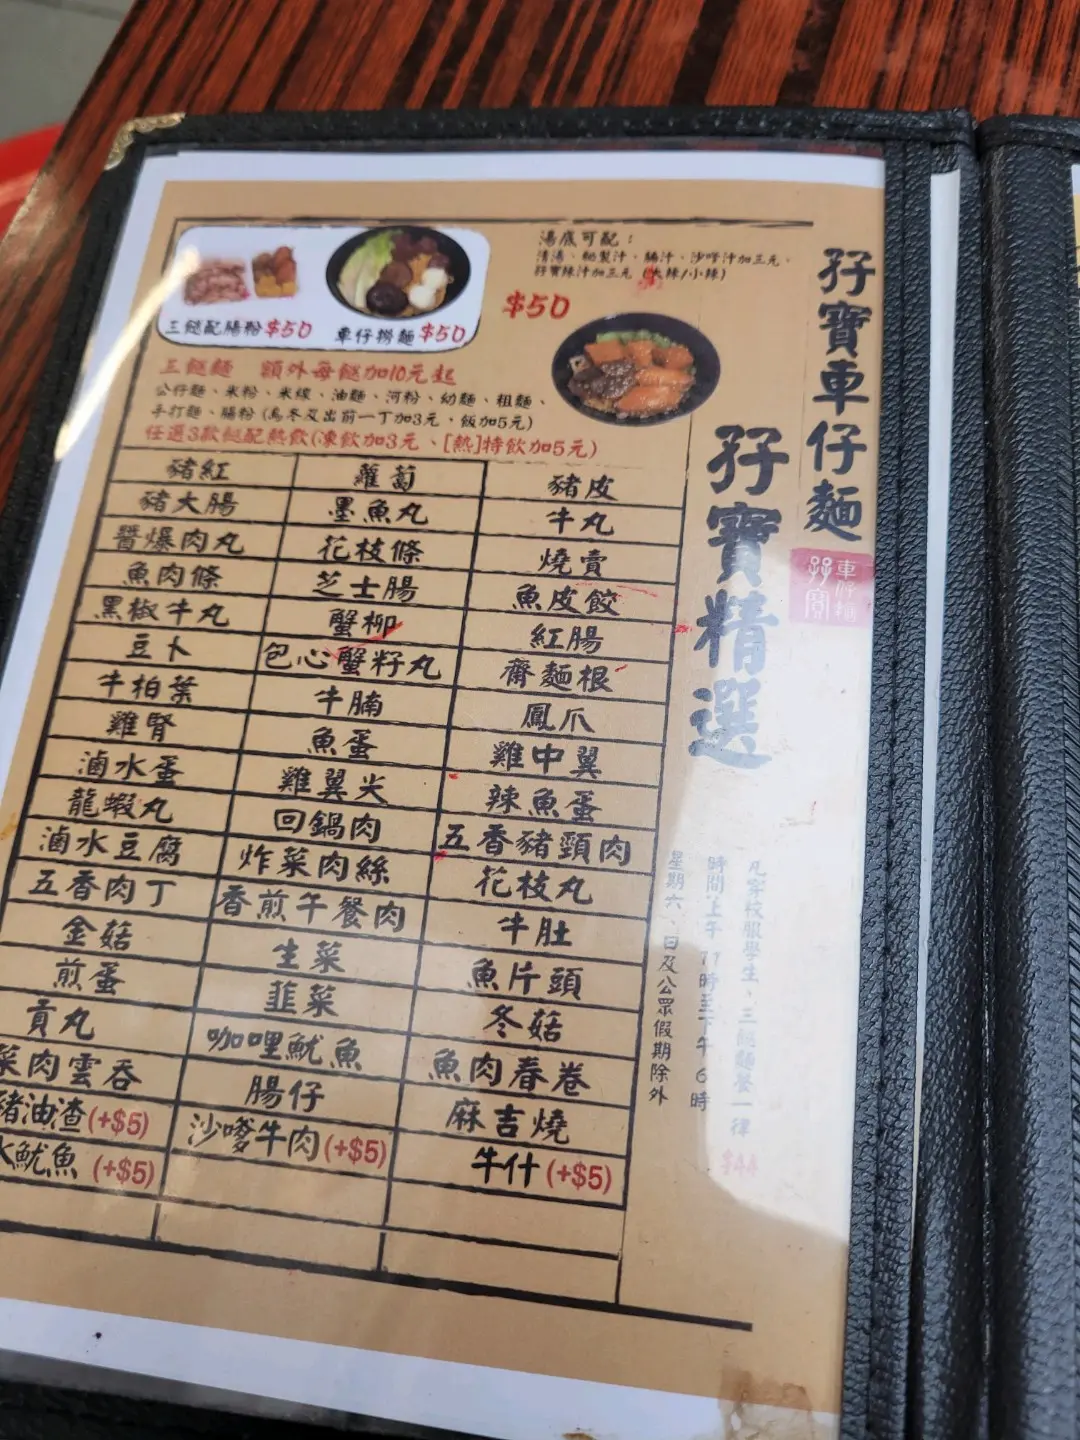 湯底可配：
清湯、秘製汁、腩汁、沙嗲汁加三元、
孖寶辣汁加三元（大辣/小辣）
三餸配腸粉$50
車仔撈麵$50
$50
三餸麵 額外每餸加10元起
公仔麵、米粉、米線、油麵、河粉、幼麵、粗麵、
手打麵、腸粉（烏冬及出前一丁加3元，飯加5元）
任選3款餸配熱飲（凍飲加3元、[熱]特飲加5元）
豬紅 蘿蔔 豬皮
豬大腸 墨魚丸 牛丸
醬爆肉丸 花枝條 燒賣
魚肉條 芝士腸 魚皮餃
黑椒牛丸 蟹柳 紅腸
豆卜 包心蟹籽丸 齋麵根
牛柏葉 牛腩 鳳爪
雞腎 魚蛋 雞中翼
滷水蛋 雞翼尖 辣魚蛋
龍蝦丸 回鍋肉 五香豬頸肉
滷水豆腐 炸菜肉絲 花枝丸
五香肉丁 香煎午餐肉 牛肚
金菇 生菜 魚片頭
煎蛋 韮菜 冬菇
貢丸 咖哩魷魚 魚肉春卷
菜肉雲吞 腸仔 麻吉燒
豬油渣(+$5) 沙嗲牛肉(+$5) 牛什(+$5)
魷魚(+$5)
孖寶車仔麵
孖寶
車仔麵
孖寶精選
凡穿校服學生、三餸麵餐一律
$44
時間上午11時至下午6時
星期六、日及公眾假期除外